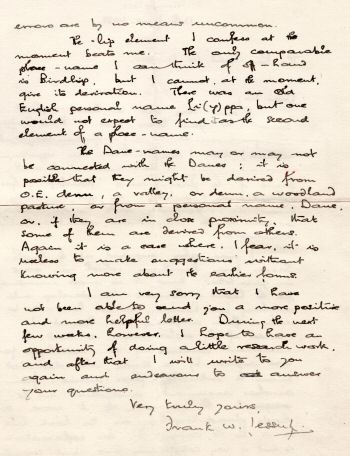 errors are by no means uncommon.
The -lip element I confess at the
moment beats me. The only comparable
place-name I can think of off-hand
is Birdlip, but I cannot, at the moment,
give its derivation. There was an Old
English personal name Li(y)ppa, but one
would not expect to find it as the second
element of a place-name.
The Dane-names may or may not
be connected with the Danes; it is
possible that they might be derived from
O.E. denu, a valley, or denn, a woodland
pasture, or from a personal name, Dane,
or, if they are in close proximity, that
some of them are derived from others.
Again it is a case where, I fear, it is
useless to make suggestions without
knowing more about the earlier forms.
I am very sorry that I have
not been able to send you a more positive
and more helpful letter. During the next
few weeks, however, I hope to have an
opportunity of doing a little research work,
and after that I will write to you
again and endeavour to answer
your questions.
Very truly yours,
Frank W. Jessup.